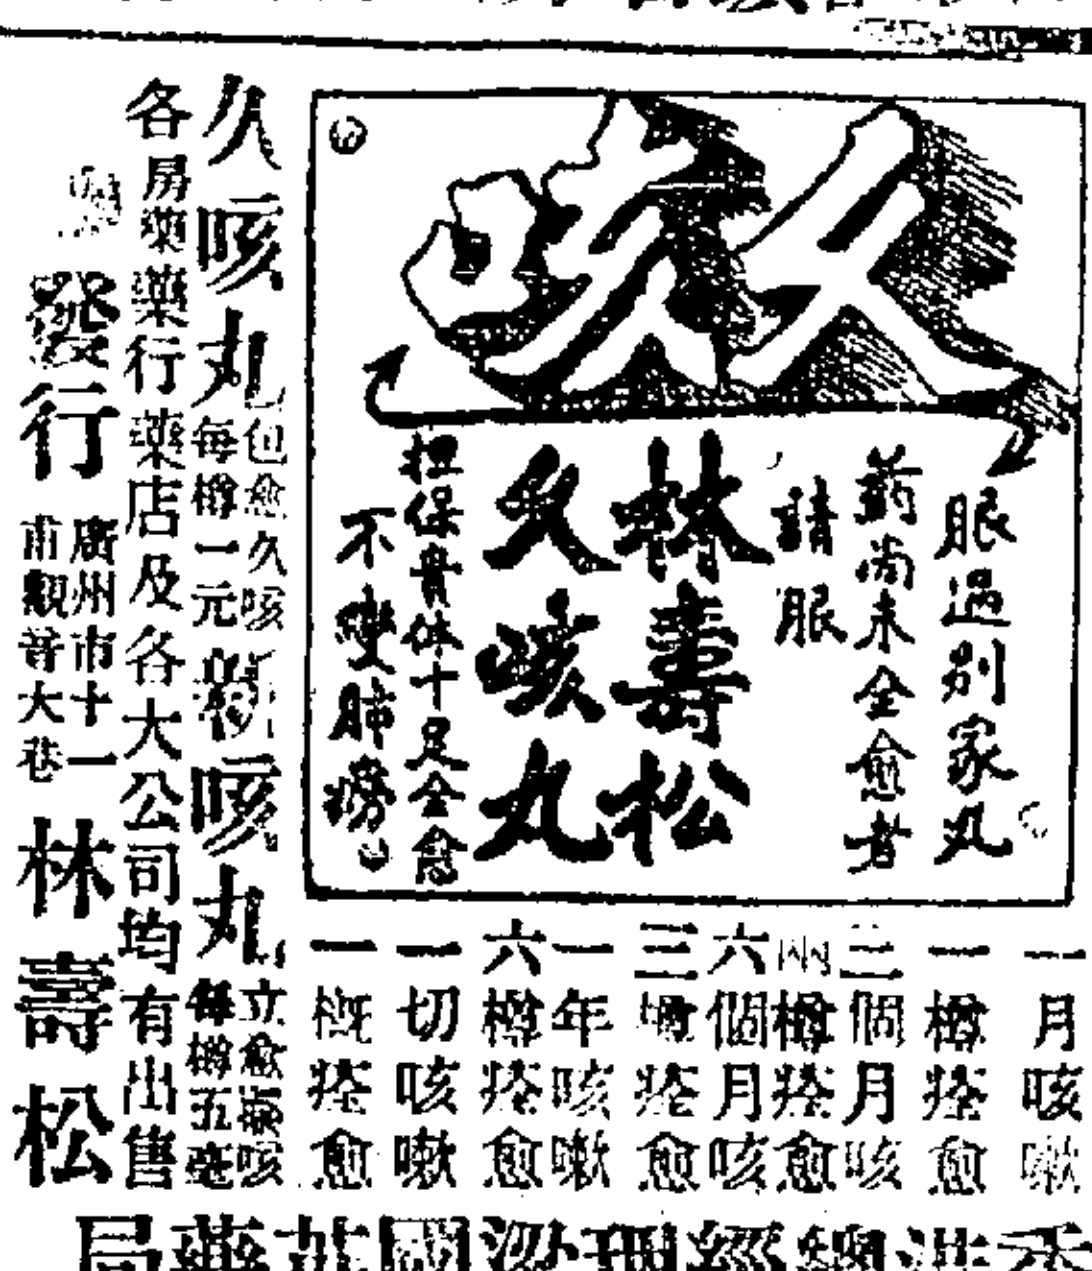 久咳
服過別家丸
药尚未全愈者
請服
林壽松
久咳丸
担保貴体十足全愈
不變肺癆
一月咳嗽
一樽痊愈
三個月咳
兩樽痊愈
六個月咳
三樽痊愈
一年咳嗽
六樽痊愈
一切咳嗽
一概痊愈
久咳丸
包愈久咳
每樽一元
新咳丸
立愈新咳
每樽五毫
各房藥藥行藥店及各大公司均有出售
發行
廣州市十一
甫觀音大巷
林壽松